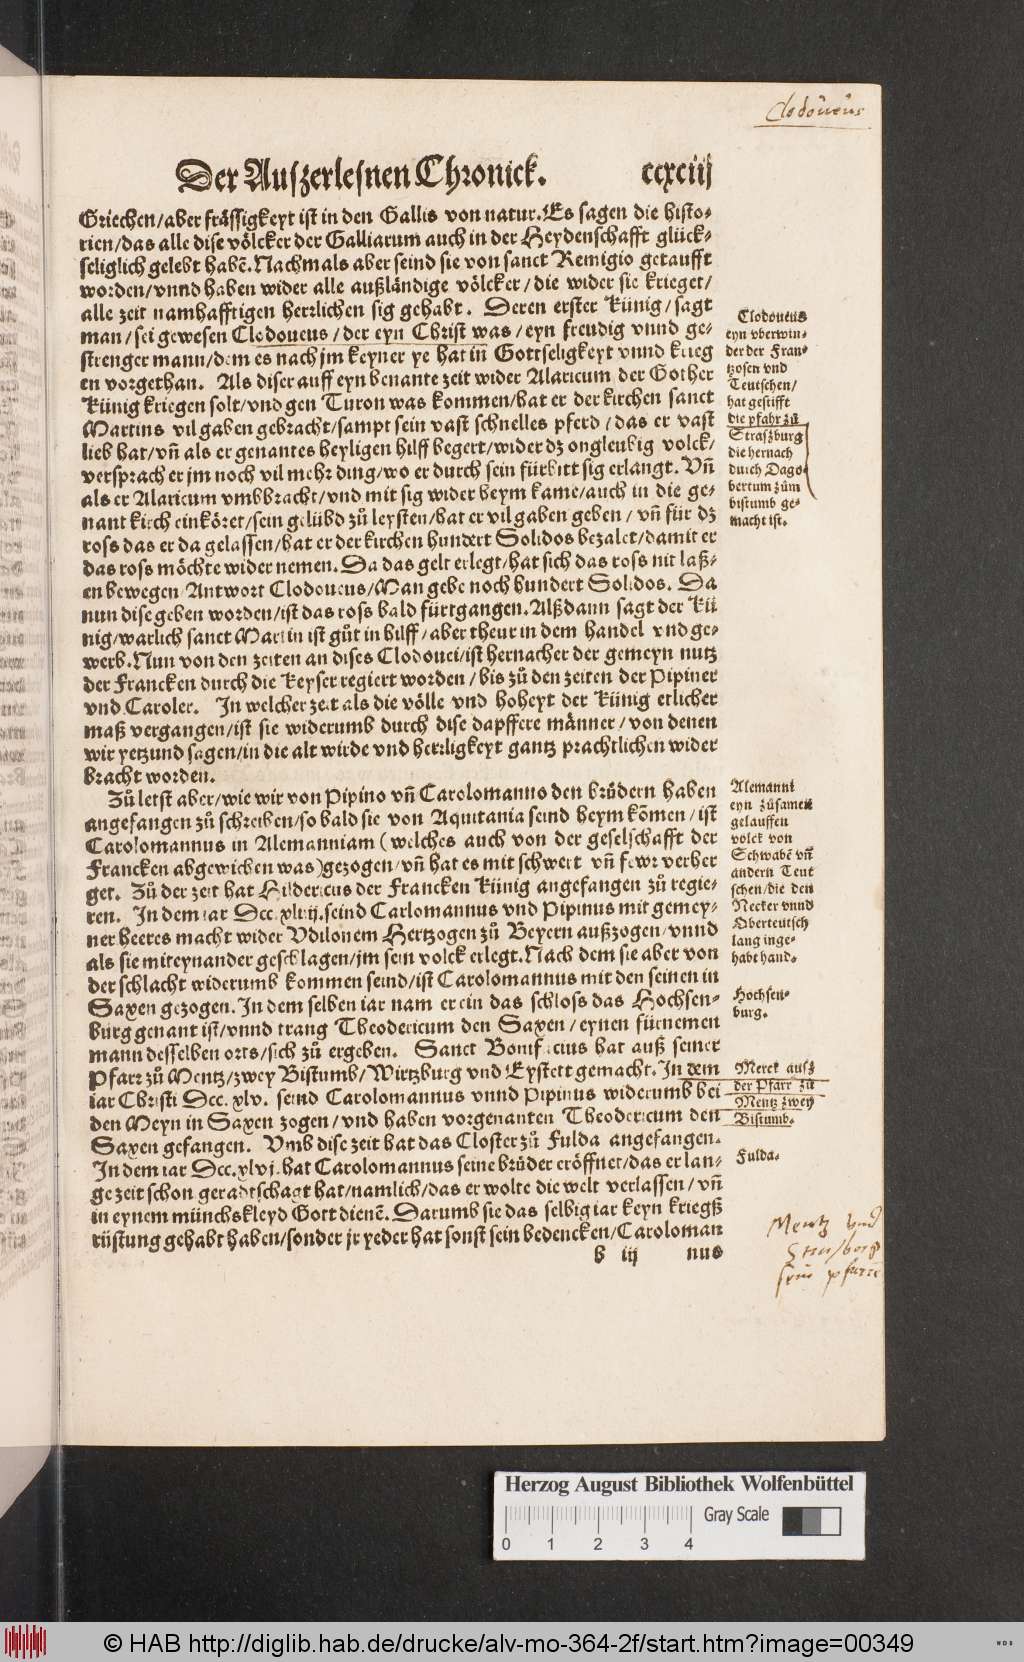 Clodoueus
Der Auszerlesnen Chronick. ccxciij
Griechen/aber frässigkeyt ist in den Gallis von natur. Es sagen die histo-
rien/das alle dise völcker der Galliarum auch in der Heydenschafft glück-
seliglich gelebt habē. Nachmals aber seind sie von sanct Remigio getaufft
worden/vnnd haben wider alle außländige völcker/die wider sie krieget/
alle zeit namhafftigen herrlichen sig gehabt. Deren erster Künig/sagt
man/sei gewesen Clodoueus/der eyn Christ was/eyn freudig vnnd ge-
strenger mann/dem es nach jm keyner ye hat in Gottseligkeyt vnnd krieg
en vorgethan. Als diser auff eyn benante zeit wider Alaricum der Gother
Künig kriegen solt/vnd gen Turon was kommen/hat er der kirchen sanct
Martins vil gaben gebracht/sampt sein vast schnelles pferd/das er vast
lieb hat/vñ als er genantes heyligen hilff begert/wider dz ongleubig volck/
versprach er jm noch vil mehr ding/wo er durch sein fürbitt sig erlangt. Vñ
als er Alaricum vmbbracht/vnd mit sig wider heym kame/auch in die ge-
nant kirch einköret/sein gelübd zů leysten/hat er vil gaben geben/vñ für dz
ross das er da gelassen/hat er der kirchen hundert Solidos bezalet/damit er
das ross möchte wider nemen. Da das gelt erlegt/hat sich das ross nit laß-
en bewegen/Antwort Clodoueus/Man gebe noch hundert Solidos. Da
nun dise geben worden/ist das ross bald fürtgangen. Alßdann sagt der Kü
nig/warlich sanct Martin ist gůt in hilff/aber theur in dem handel vnd ge-
werb. Nun von den zeiten an dises Clodouei/ist hernacher der gemeyn nutz
der Francken durch die Keyser regiert worden/bis zů den zeiten der Pipiner
vnd Caroler. In welcher zeit als die völle vnd hoheyt der Künig etlicher
maß vergangen/ist sie widerumb durch dise dapffere männer/von denen
wir yetzund sagen/in die alt wirde vnd herrligkeyt gantz prachtlichen wider
bracht worden.
Clodoueus
eyn vberwin-
der der Fran-
tzosen vnd
Teutschen/
hat gestifft
die pfahr zů
Straßburg
die hernach
durch Dago-
bertum zům
bistumb ge-
macht ist.
Zů letst aber/wie wir von Pipino vñ Carolomanno den brüdern haben
angefangen zů schreiben/so bald sie von Aquitania seind heym kōmen/ist
Carolomannus in Alemanniam (welches auch von der geselschafft der
Francken abgewichen was) gezogen/vñ hat es mit schwert vñ fewr verher
get. Zů der zeit hat Hildericus der Francken Künig angefangen zů regie-
ren. In dem iar Dcc.xliij. seind Carlomannus vnd Pipinus mit gemey-
ner heeres macht wider Vdilonem Hertzogen zů Beyern außzogen/vnnd
als sie miteynander geschlagen/jm sein volck erlegt. Nach dem sie aber von
der schlacht widerumb kommen seind/ist Carolomannus mit den seinen in
Saxen gezogen. In dem selben iar nam er ein das schloss das Hochsen-
burg genant ist/vnnd trang Theodericum den Saxen/eynen fürnemen
mann desselben orts/sich zů ergeben. Sanct Bonifacius hat auß seiner
Pfarr zů Mentz/zwey Bistumb/Wirtzburg vnd Eystett gemacht. In dem
iar Christi Dcc.xlv. seind Carolomannus vnnd Pipinus widerumb bei
den Meyn in Saxen zogen/vnd haben vorgenanten Theodericum den
Saxen gefangen. Vmb dise zeit hat das Closter zů Fulda angefangen.
In dem iar Dcc.xlvj. hat Carolomannus seine brüder eröffnet/das er lan-
ge zeit schon geradtschagt hat/namlich/das er wolte die welt verlassen/vñ
in eynem münchskleyd Gott dienē. Darumb sie das selbig iar keyn kriegß
rüstung gehabt haben/sonder jr yeder hat sonst sein bedencken/Caroloman
b iij nus
Alemanni
eyn zůsamen
gelauffen
volck von
Schwabē vñ
andern Teut
schen/die den
Necker vnnd
Oberteutsch
lang inge-
habt hand.
Hochsen-
burg.
Merck ausz
der Pfarr zů
Mentz zwey
Bistumb.
Fulda.
Mentz vnd
Strasburg
sein pfarre
Herzog August Bibliothek Wolfenbüttel
Gray Scale
0 1 2 3 4
© HAB http://diglib.hab.de/drucke/alv-mo-364-2f/start.htm?image=00349
HAB